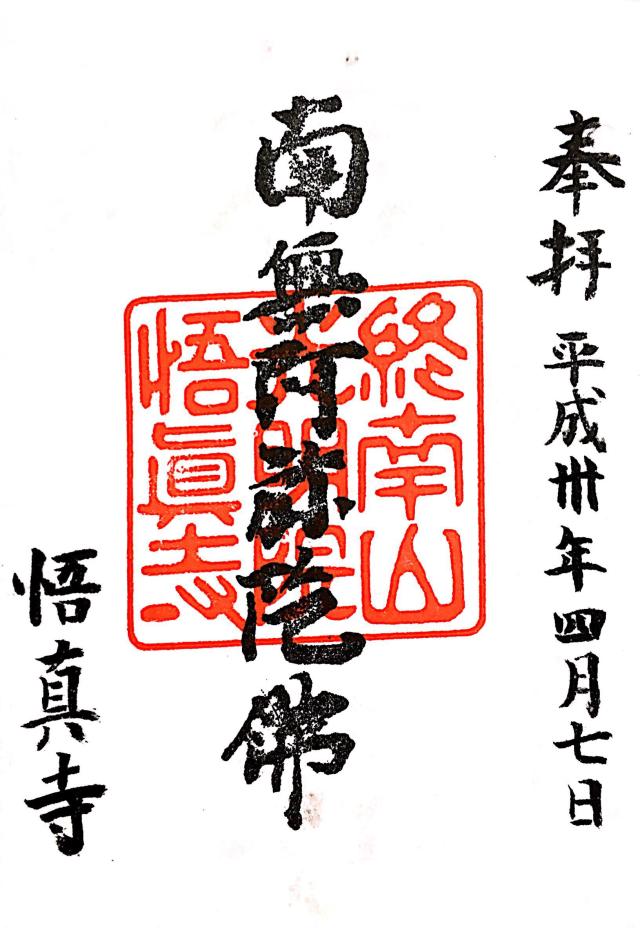 奉拝 平成卅年四月七日
南無阿弥陀佛
終南山
光明院
悟眞寺
悟真寺